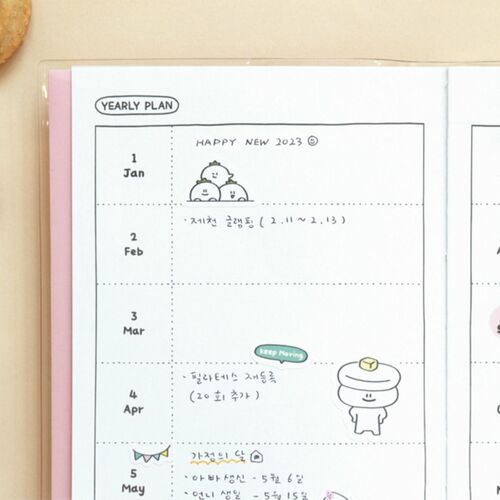 YEARLY PLAN
1
Jan
HAPPY NEW 2023
2
Feb
· 제천 글램핑 ( 2.11 ~ 2.13 )
3
Mar
keep Moving
4
Apr
· 필라테스 재등록
(20회 추가)
5
May
가정의 달
· 아빠생신 - 5월 6일
· 언니 생일 - 5월 15일